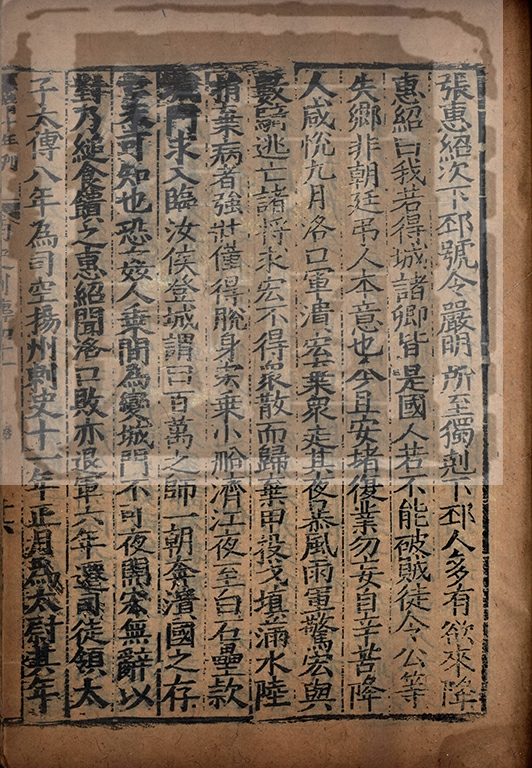 張惠紹次下邳號令嚴明所至獨剋下邳人多有欲來降
惠紹曰我若得城諸卿皆是國人若不能破賊徒令公等
失鄉非朝廷弔人本意也今且安堵復業勿妄自辛苦降
人咸悅九月洛口軍潰宏棄眾走其夜暴風雨軍驚宏與
數騎逃亡諸將求宏不得眾散而歸棄甲投戈填滿水陸
捐棄病者強壯僅得脫身宏乗小船濟江夜至白石壘款
城門求入臨汝侯登城謂曰百萬之師一朝奔潰國之存
亡未可知也恐姦人乗間為變城門不可夜開宏無辭以
對乃縋食饋之惠紹聞洛口敗亦退軍六年遷司徒領太
子太傅八年為司空揚州刺史十一年正月為太尉其年